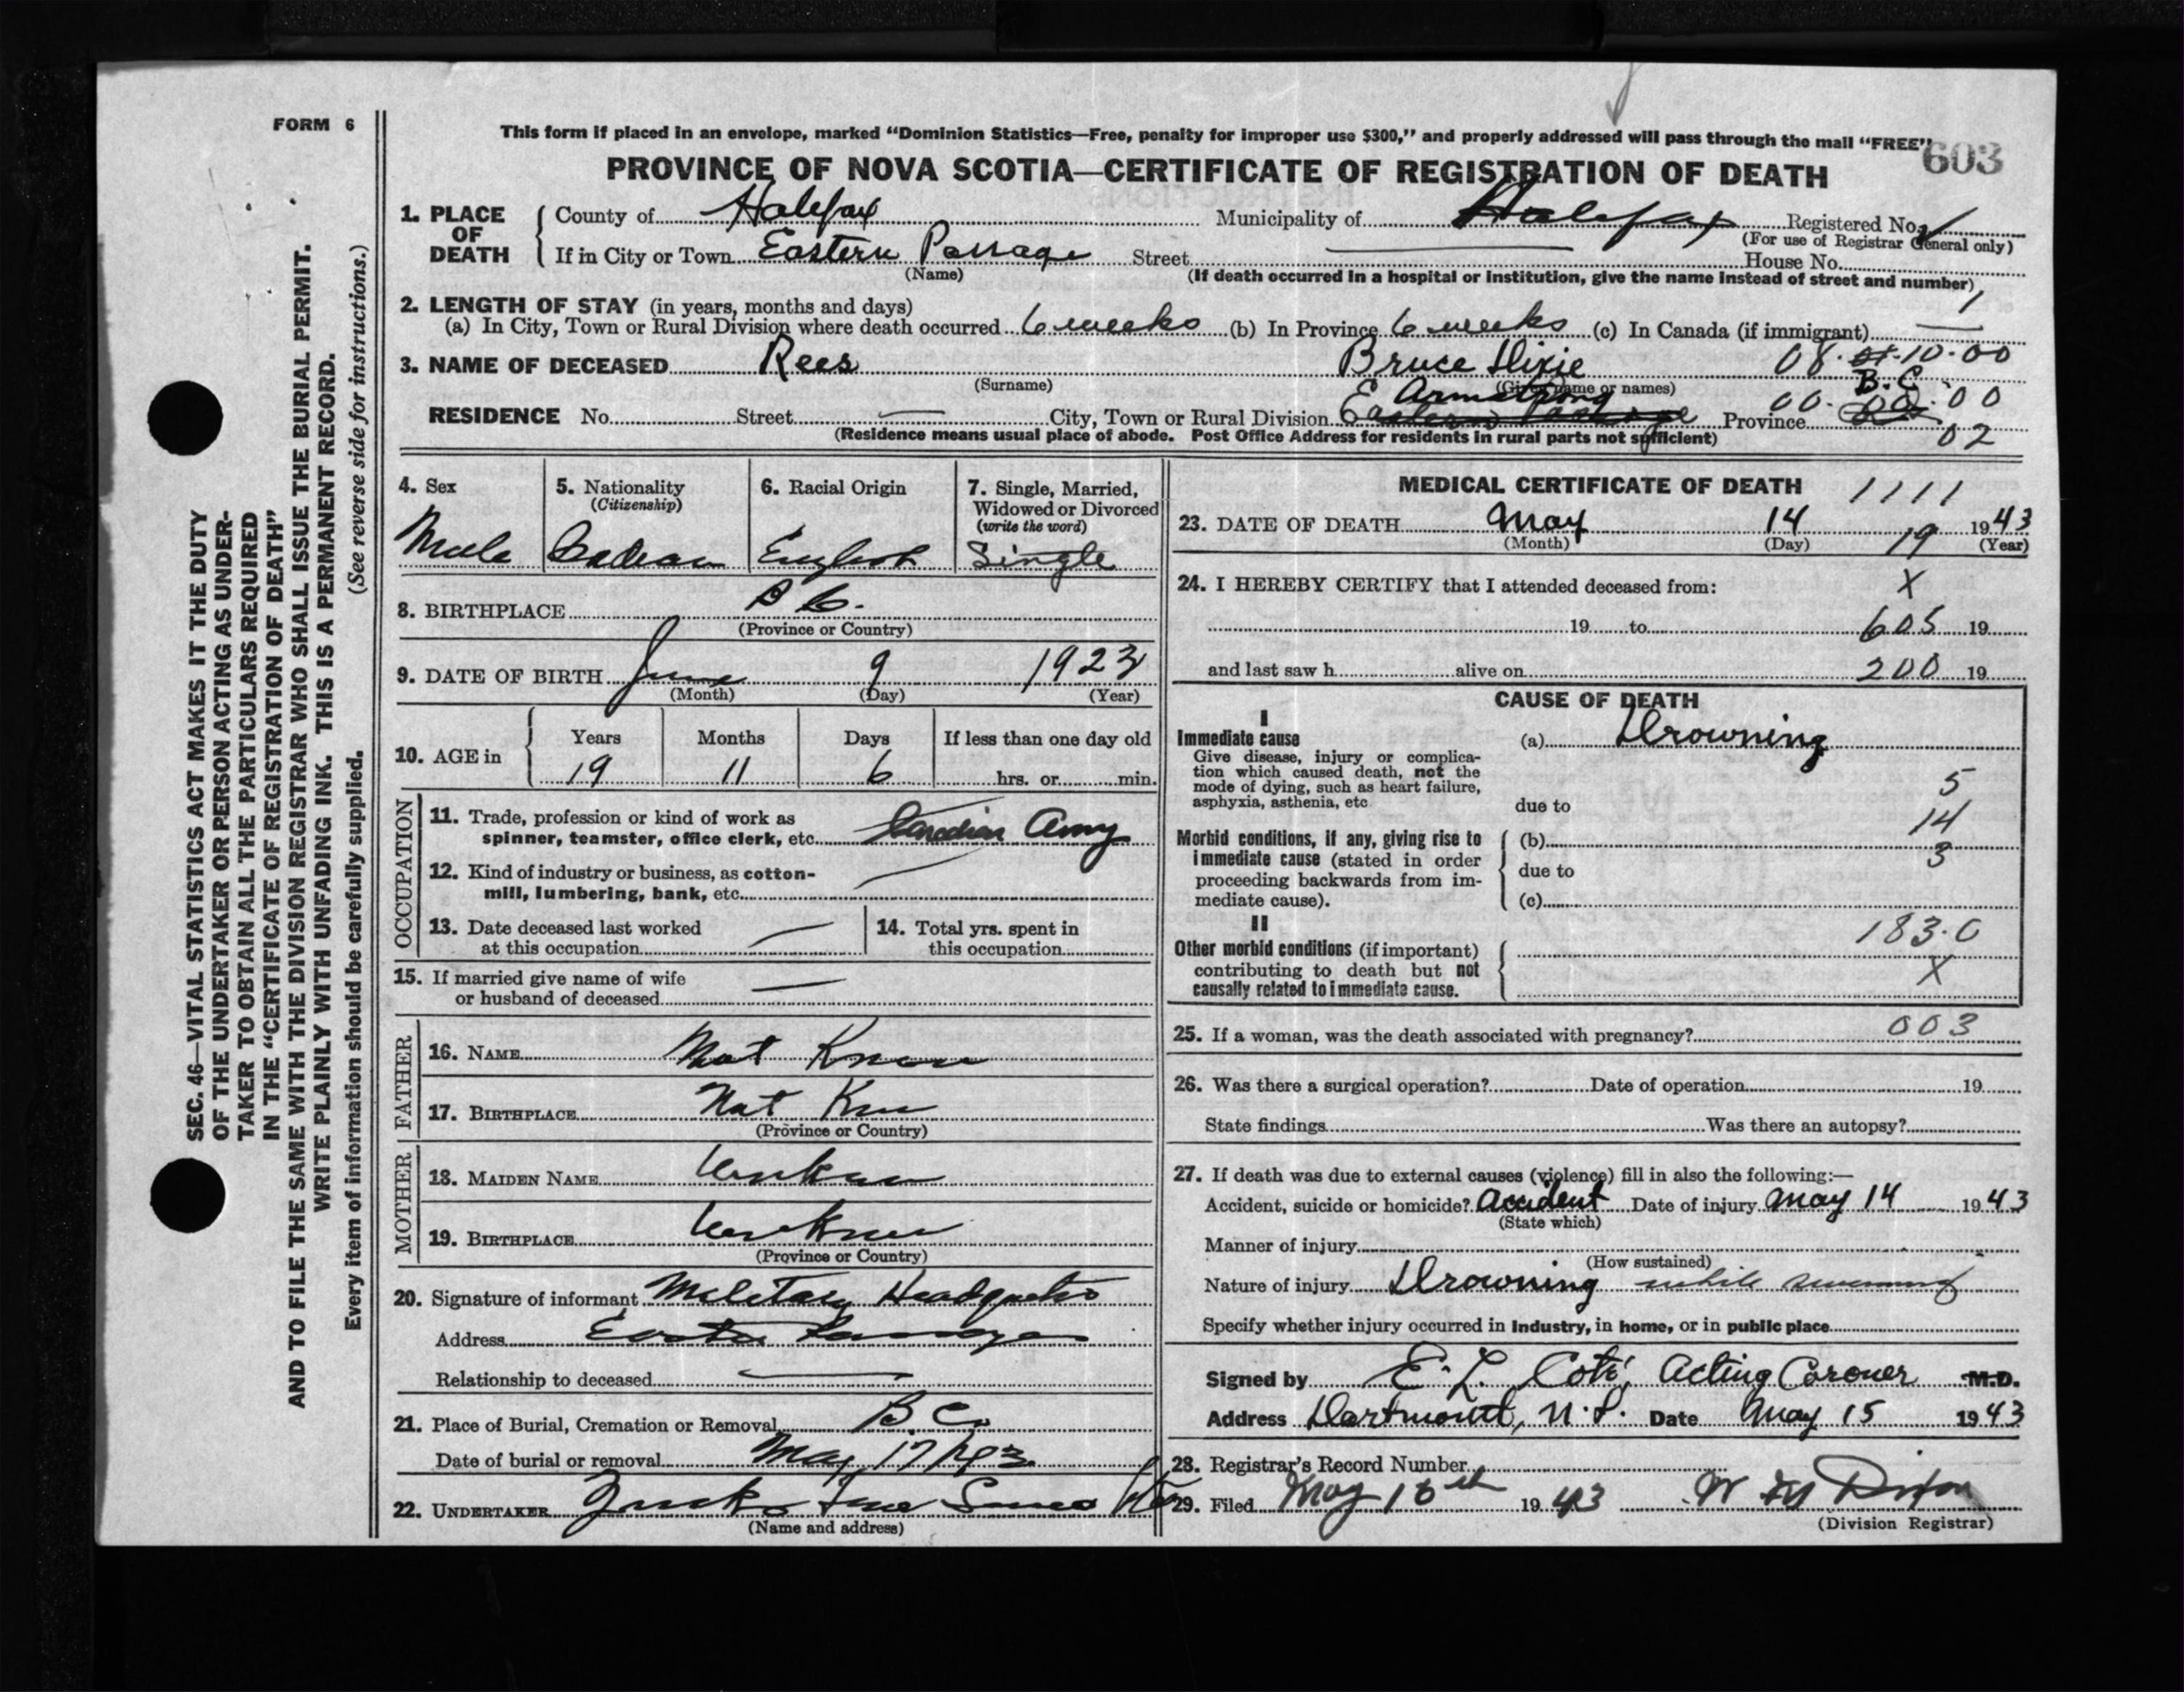 FORM 6
SEC. 46—VITAL STATISTICS ACT MAKES IT THE DUTY
OF THE UNDERTAKER OR PERSON ACTING AS UNDER-
TAKER TO OBTAIN ALL THE PARTICULARS REQUIRED
IN THE "CERTIFICATE OF REGISTRATION OF DEATH"
AND TO FILE THE SAME WITH THE DIVISION REGISTRAR WHO SHALL ISSUE THE BURIAL PERMIT.
WRITE PLAINLY WITH UNFADING INK. THIS IS A PERMANENT RECORD.
Every item of information should be carefully supplied. (See reverse side for instructions.)
This form if placed in an envelope, marked "Dominion Statistics—Free, penalty for improper use $300," and properly addressed will pass through the mail "FREE"
603
PROVINCE OF NOVA SCOTIA—CERTIFICATE OF REGISTRATION OF DEATH
1. PLACE OF DEATH
County of Halifax Municipality of Halifax Registered No.
(For use of Registrar General only)
If in City or Town Eastern Passage Street House No.
(Name) (If death occurred in a hospital or institution, give the name instead of street and number)
2. LENGTH OF STAY (in years, months and days) 1
(a) In City, Town or Rural Division where death occurred 6 weeks (b) In Province 6 weeks (c) In Canada (if immigrant)
3. NAME OF DECEASED Rees Bruce Dixie 08. 10.00
(Surname) (Given name or names)
Armstrong B.C. 00. 00
RESIDENCE No. Street City, Town or Rural Division Eastern Passage Province
(Residence means usual place of abode. Post Office Address for residents in rural parts not sufficient) 02
4. Sex
Male
5. Nationality
(Citizenship)
6. Racial Origin
English
7. Single, Married,
Widowed or Divorced
(write the word)
Single
8. BIRTHPLACE B C.
(Province or Country)
9. DATE OF BIRTH June 9 1923
(Month) (Day) (Year)
10. AGE in
Years Months Days If less than one day old
19 11 6 hrs. or min.
OCCUPATION
11. Trade, profession or kind of work as
spinner, teamster, office clerk, etc. Canadian Army
12. Kind of industry or business, as cotton-
mill, lumbering, bank, etc.
13. Date deceased last worked
at this occupation
14. Total yrs. spent in
this occupation
15. If married give name of wife
or husband of deceased
FATHER
16. NAME Not Known
17. BIRTHPLACE Not Kn
(Province or Country)
MOTHER
18. MAIDEN NAME
19. BIRTHPLACE
(Province or Country)
20. Signature of informant Military Headquarters
Address Eastern Passage
Relationship to deceased
21. Place of Burial, Cremation or Removal B C.
Date of burial or removal May 17/43
22. UNDERTAKER
(Name and address)
MEDICAL CERTIFICATE OF DEATH 1111
23. DATE OF DEATH May 14 1943
(Month) (Day) 19 (Year)
24. I HEREBY CERTIFY that I attended deceased from: X
19 to 605 19
and last saw h alive on 200 19
CAUSE OF DEATH
I
Immediate cause
Give disease, injury or complica-
tion which caused death, not the
mode of dying, such as heart failure,
asphyxia, asthenia, etc
(a) Drowning
5
due to
14
Morbid conditions, if any, giving rise to
immediate cause (stated in order
proceeding backwards from im-
mediate cause).
(b)
3
due to
(c)
II
Other morbid conditions (if important)
contributing to death but not
causally related to immediate cause.
183.0
X
25. If a woman, was the death associated with pregnancy? 003
26. Was there a surgical operation? Date of operation 19
State findings Was there an autopsy?
27. If death was due to external causes (violence) fill in also the following:—
Accident, suicide or homicide? Accident Date of injury May 14 1943
(State which)
Manner of injury
(How sustained)
Nature of injury Drowning while swimming
Specify whether injury occurred in industry, in home, or in public place
Signed by E. L. Coté, Acting Coroner M.D.
Address Dartmouth, N.S. Date May 15 1943
28. Registrar's Record Number
29. Filed May 18th 1943 W M Dixon
(Division Registrar)